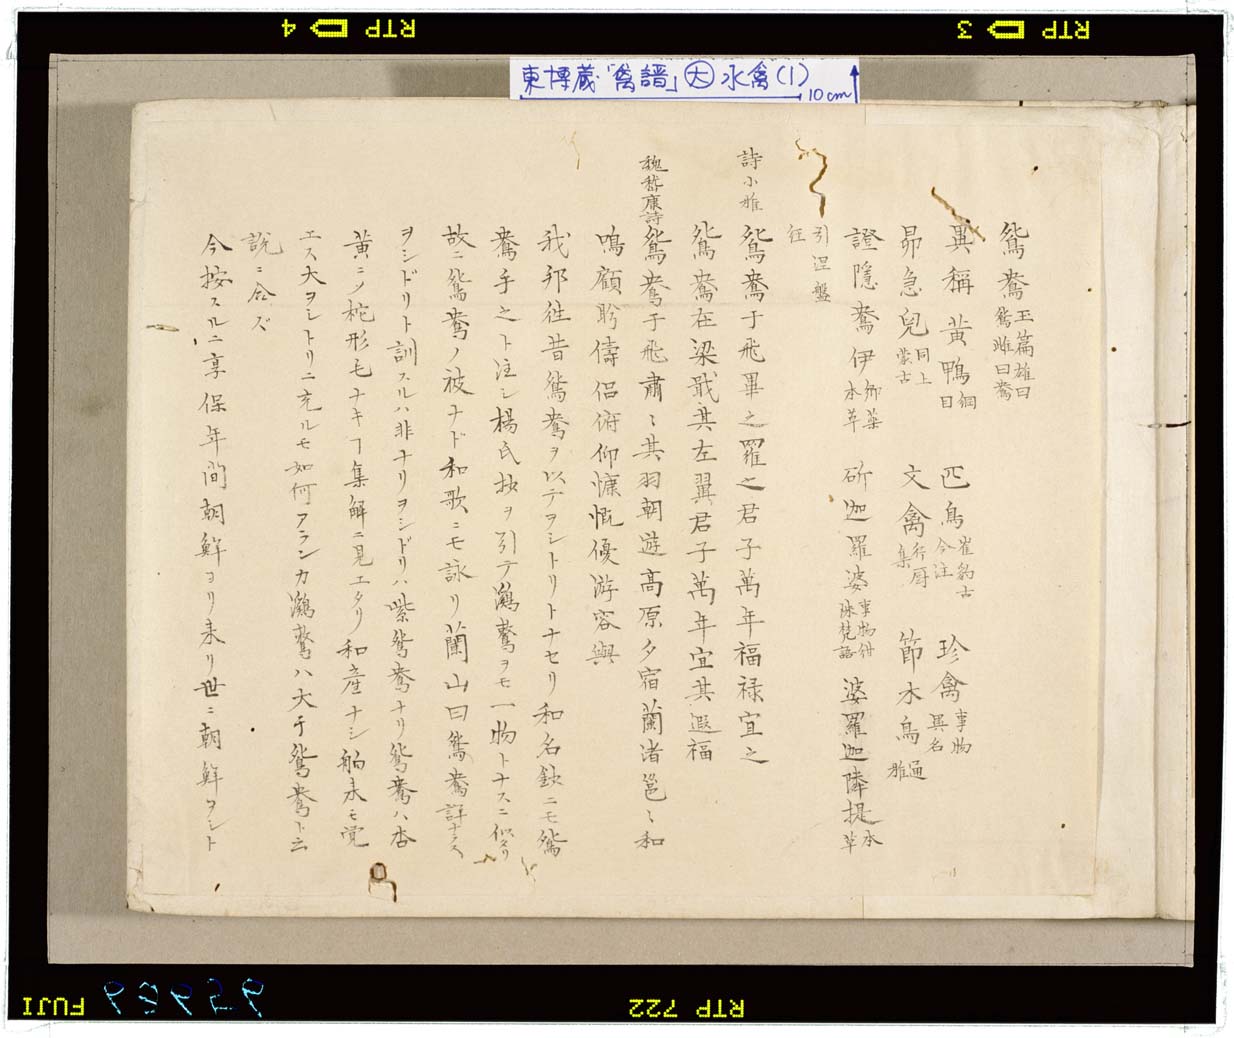 RTP 4
RTP 3
東博蔵「禽譜」大 水禽(1)
10cm
鴛鴦 玉篇雄曰鴛雌曰鴦
異稱 黄鴨 綱目 匹鳥 崔豹古今注 珍禽 事物異名
昴急兒 同上蒙古 文禽 行厨集 節木鳥 通雅
證隱鴦伊 郷薬本草 斫迦羅婆 事物紺珠梵語 婆羅迦隣提 本草
引涅盤
経
詩小雅 鴛鴦于飛畢之羅之君子萬年福禄宜之
鴛鴦在梁戢其左翼君子萬年宜其遐福
魏嵆康詩 鴛鴦于飛肅〻其羽朝遊高原夕宿蘭渚邕〻和
鳴顧眄儔侶俯仰慷慨優游容與
我邦往昔鴛鴦ヲ以テヲシトリトナセリ和名鈔ニモ鴛
鴦乎之ト注シ楊氏抄ヲ引テ鸂鶒ヲモ一物トナスニ似タリ
故ニ鴛鴦ノ被ナド和歌ニモ詠リ蘭山曰鴛鴦詳ナラス
ヲシドリト訓スルハ非ナリヲシドリハ紫鴛鴦ナリ鴛鴦ハ杏
黄ニノ柁形毛ナキヿ集解ニ見エタリ和産ナシ舶来モ覚
エス大ヲシトリニ充ルモ如何アランカ鸂鶒ハ大于鴛鴦ト云
説ニ合ズ
今按スルニ享保年間朝鮮ヨリ来リ世ニ朝鮮ヲシト
FUJI
95989
RTP 722
RTP